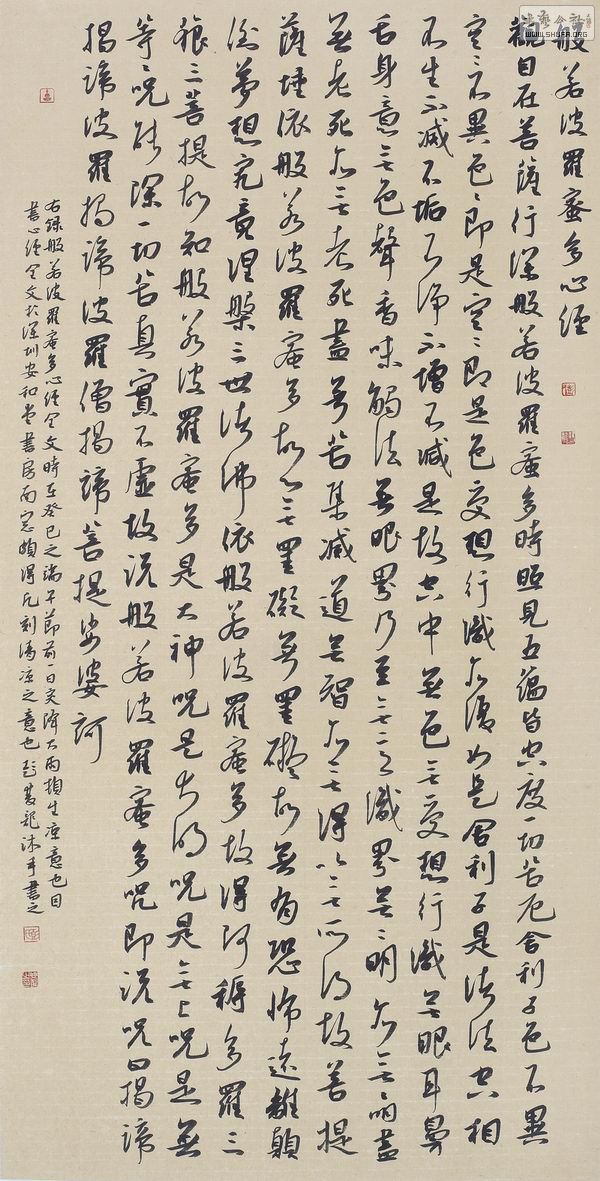 般若波羅蜜多心經
觀自在菩薩行深般若波羅蜜多時照見五蘊皆空度一切苦厄舍利子色不異
空〻不異色〻即是空〻即是色受想行識亦復如是舍利子是諸法空相
不生不滅不垢不淨不增不減是故空中無色無受想行識無眼耳鼻
舌身意無色聲香味觸法無眼界乃至無意識界無〻明亦無明盡
無老死亦無老死盡無苦集滅道無智亦無得以無所得故菩提
薩埵依般若波羅蜜多故心無罣礙無罣礙故無有恐怖遠離顛
倒夢想究竟涅槃三世諸佛依般若波羅蜜多故得阿耨多羅三
藐三菩提故知般若波羅蜜多是大神咒是大明咒是無上咒是無
等〻咒能除一切苦真實不虛故說般若波羅蜜多咒即說咒曰揭諦
揭諦波羅揭諦波羅僧揭諦菩提娑婆訶
右錄般若波羅蜜多心經全文時在癸巳之端午節前一日突降大雨頓生涼意也因
書心經全文於深圳安和堂書房南窗頗得片刻清涼之意也龍沐手書之
WWW.SHUFA.ORG